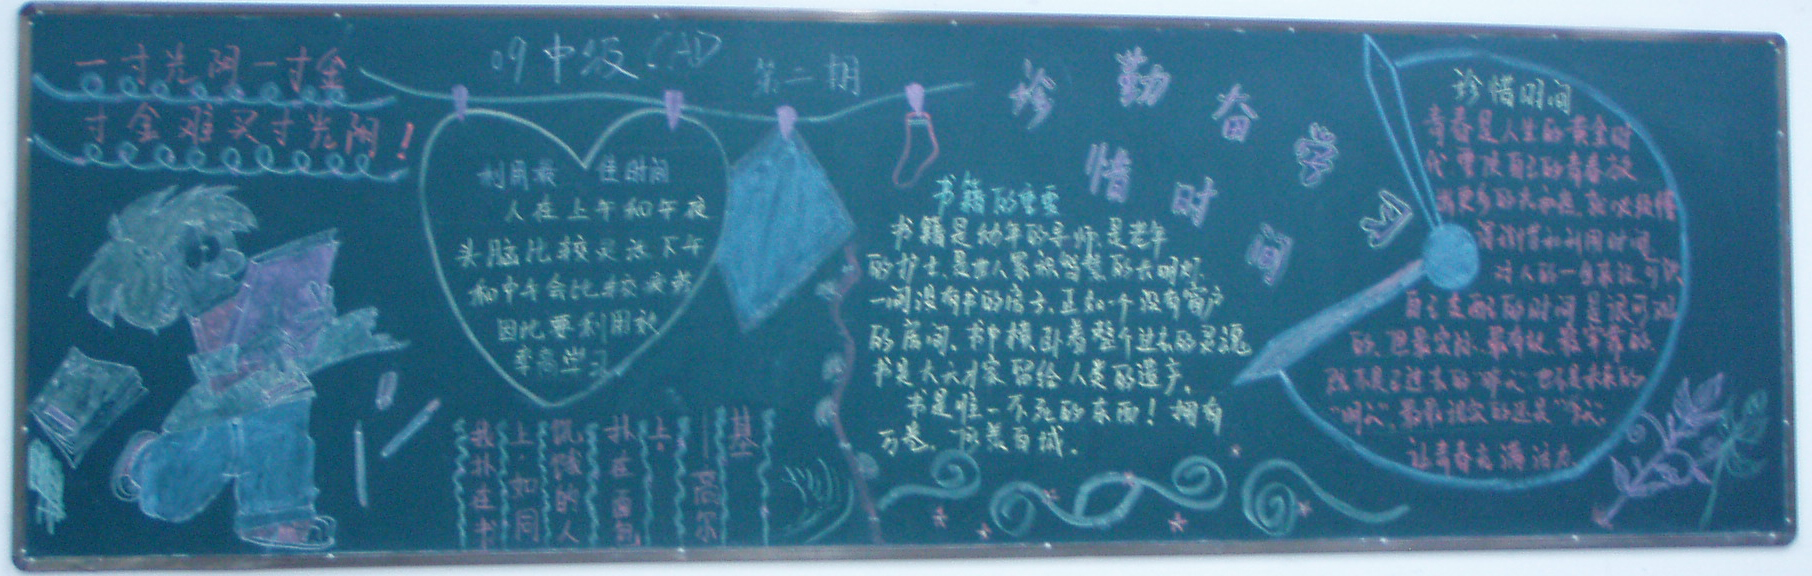 一寸光阴一寸金
寸金难买寸光阴！
09中级CAD
第二期
利用最佳时间
人在上午和午夜
头脑比较灵活下午
和中午会比较疲劳
因此要利用效
率高学习
我扑在书
上，如同
饥饿的人
扑在面包
上。
——高尔
基
珍惜时间
勤奋学习
书籍的重要
书籍是幼年的导师,是老年
的护士,是世人累积智慧的长明灯.
一间没有书的房子,正如一个没有窗户
的房间,书中横卧着整个过去的灵魂
书是天才留给人类的遗产,
书是惟一不死的东西！拥有
万卷,
百城.
珍惜时间
青春是人生的黄金时
代,要使自己的青春放
出更多的光和热,就必须懂
得珍惜和利用时间
对人的一生来说,可供
自己支配的时间是很可观
的,但最实际、最有效、最牢靠的
既不是已过去的"昨天",也不是未来的
"明天",最最现实的还是"今天"
让青春充满活力